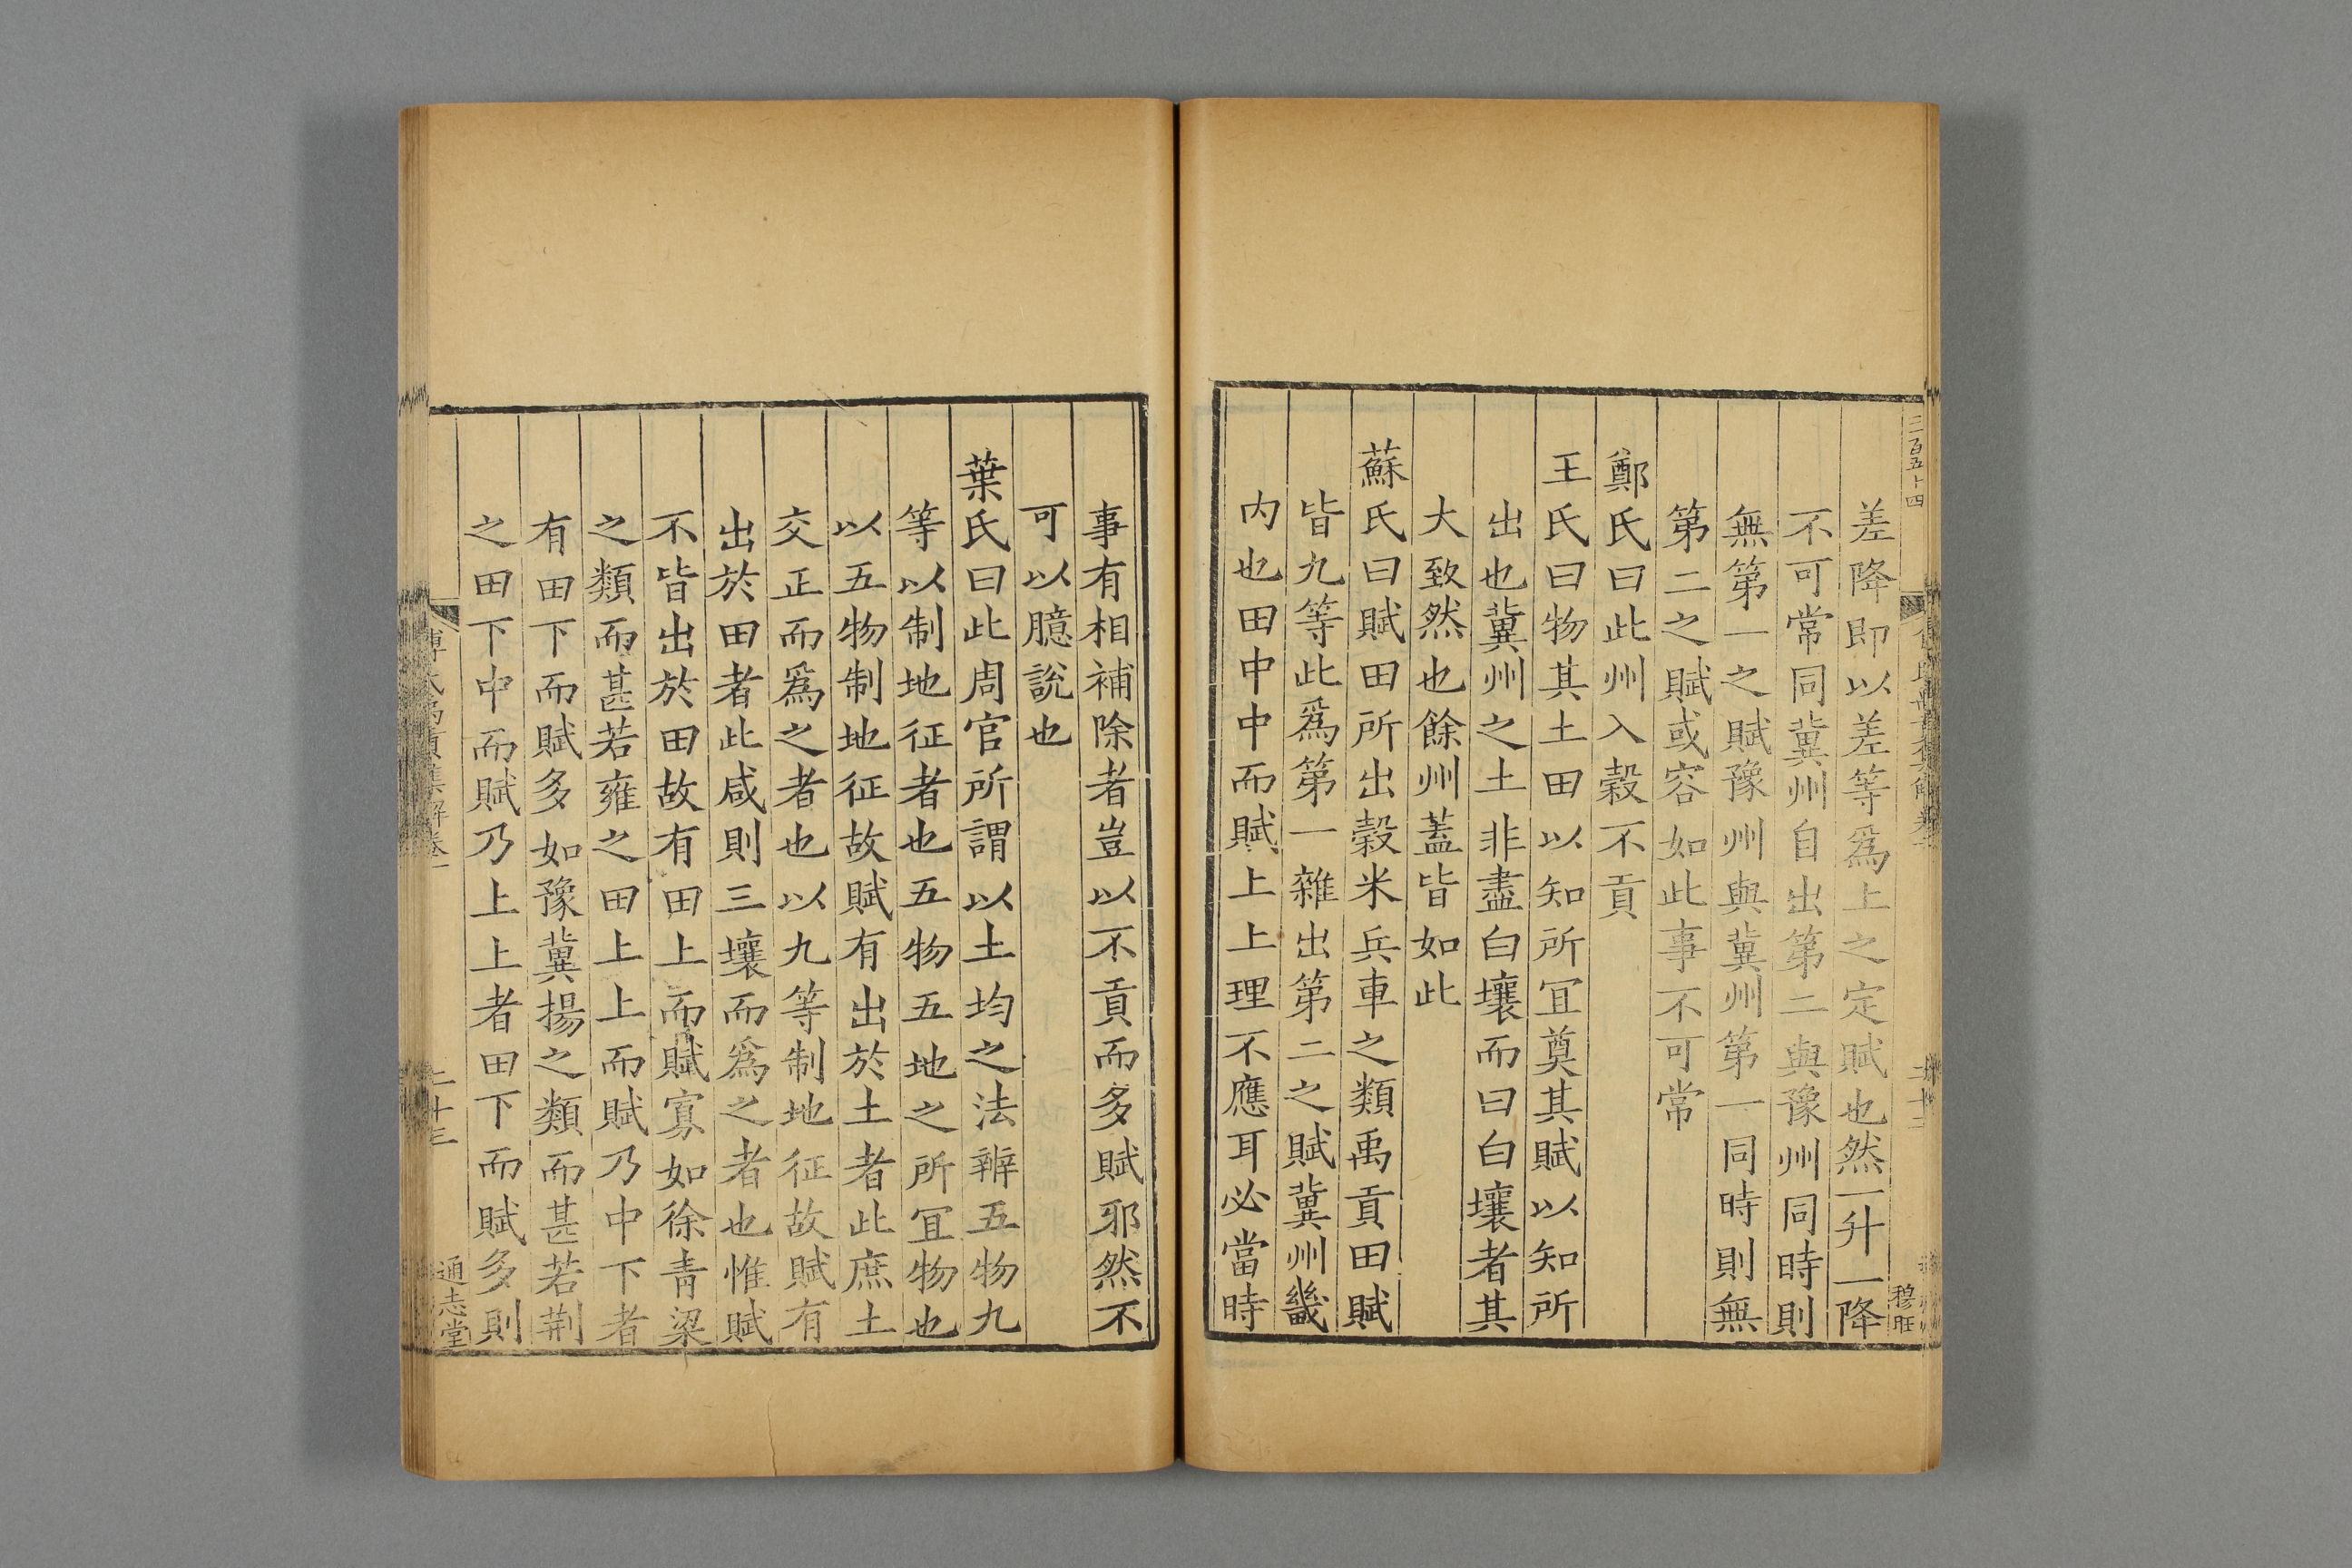 三百五十四
穆旺
差降即以差等爲上之定賦也然一升一降
不可常同冀州自出第二與豫州同時則
無第一之賦豫州與冀州第一同時則無
第二之賦或容如此事不可常
鄭氏曰此州入穀不貢
王氏曰物其土田以知所宜奠其賦以知所
出也冀州之土非盡白壤而曰白壤者其
大致然也餘州蓋皆如此
蘇氏曰賦田所出穀米兵車之類禹貢田賦
皆九等此爲第一雜出第二之賦冀州畿
内也田中中而賦上上理不應耳必當時
事有相補除者豈以不貢而多賦邪然不
可以臆說也
葉氏曰此周官所謂以土均之法辨五物九
等以制地征者也五物五地之所宜物也
以五物制地征故賦有出於土者此庶土
交正而爲之者也以九等制地征故賦有
出於田者此咸則三壤而爲之者也惟賦
不皆出於田故有田上而賦寡如徐青梁
之類而甚若雍之田上上而賦乃中下者
有田下而賦多如豫冀揚之類而甚若荆
之田下中而賦乃上上者田下而賦多則
二十三
通志堂